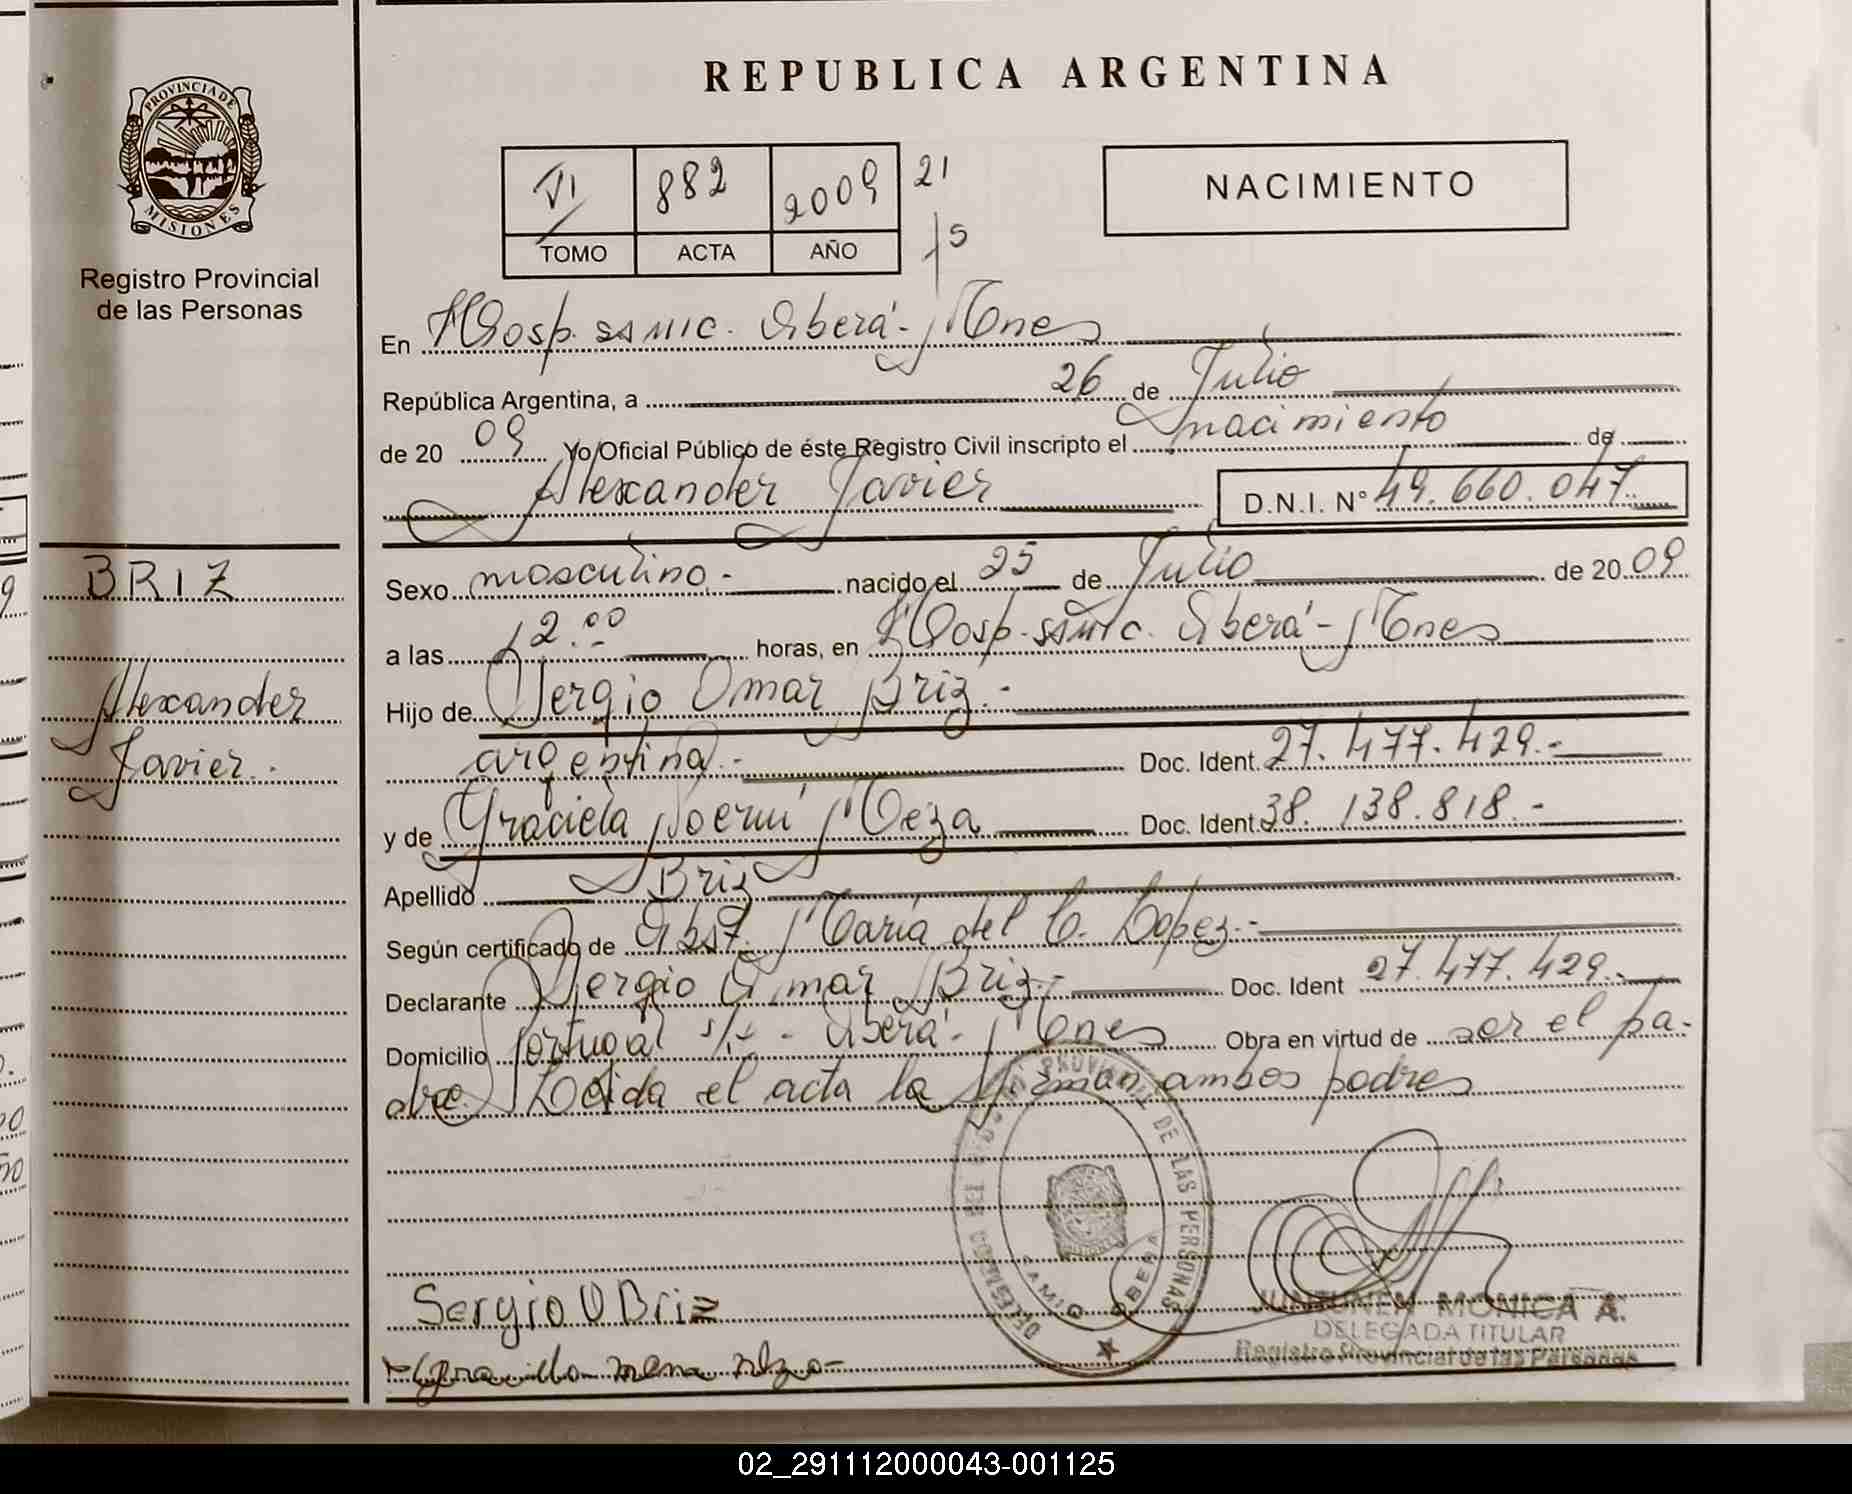 REPUBLICA ARGENTINA
PROVINCIA DE
MISIONES
Registro Provincial
de las Personas
VI 882 2009 21
TOMO ACTA AÑO 15
NACIMIENTO
En Hosp. SAMIC. Oberá - Mnes
República Argentina, a 26 de Julio
de 20 09 Yo Oficial Público de éste Registro Civil inscripto el nacimiento de
Alexander Javier D.N.I. N° 49.660.047
BRIZ
Alexander
Javier.
Sexo masculino.- nacido el 25 de Julio de 20 09
a las 12.00 horas, en Hosp. SAMIC. Oberá - Mnes
Hijo de Sergio Omar Briz.-
argentina.- Doc. Ident. 27.477.429.-
y de Graciela Noemí Meza Doc. Ident. 38.138.818.-
Apellido Briz
Según certificado de Obst. María del C. Lopez.-
Declarante Sergio Omar Briz.- Doc. Ident 27.477.429.-
Domicilio Portugal s/n - Oberá - Mnes Obra en virtud de ser el pa-
dre. Leída el acta la firman ambos padres
DE LAS PERSONAS
OBERA
Sergio O Briz
JUNTUNEN MONICA A.
DELEGADA TITULAR
Registro Provincial de las Personas
02_291112000043-001125